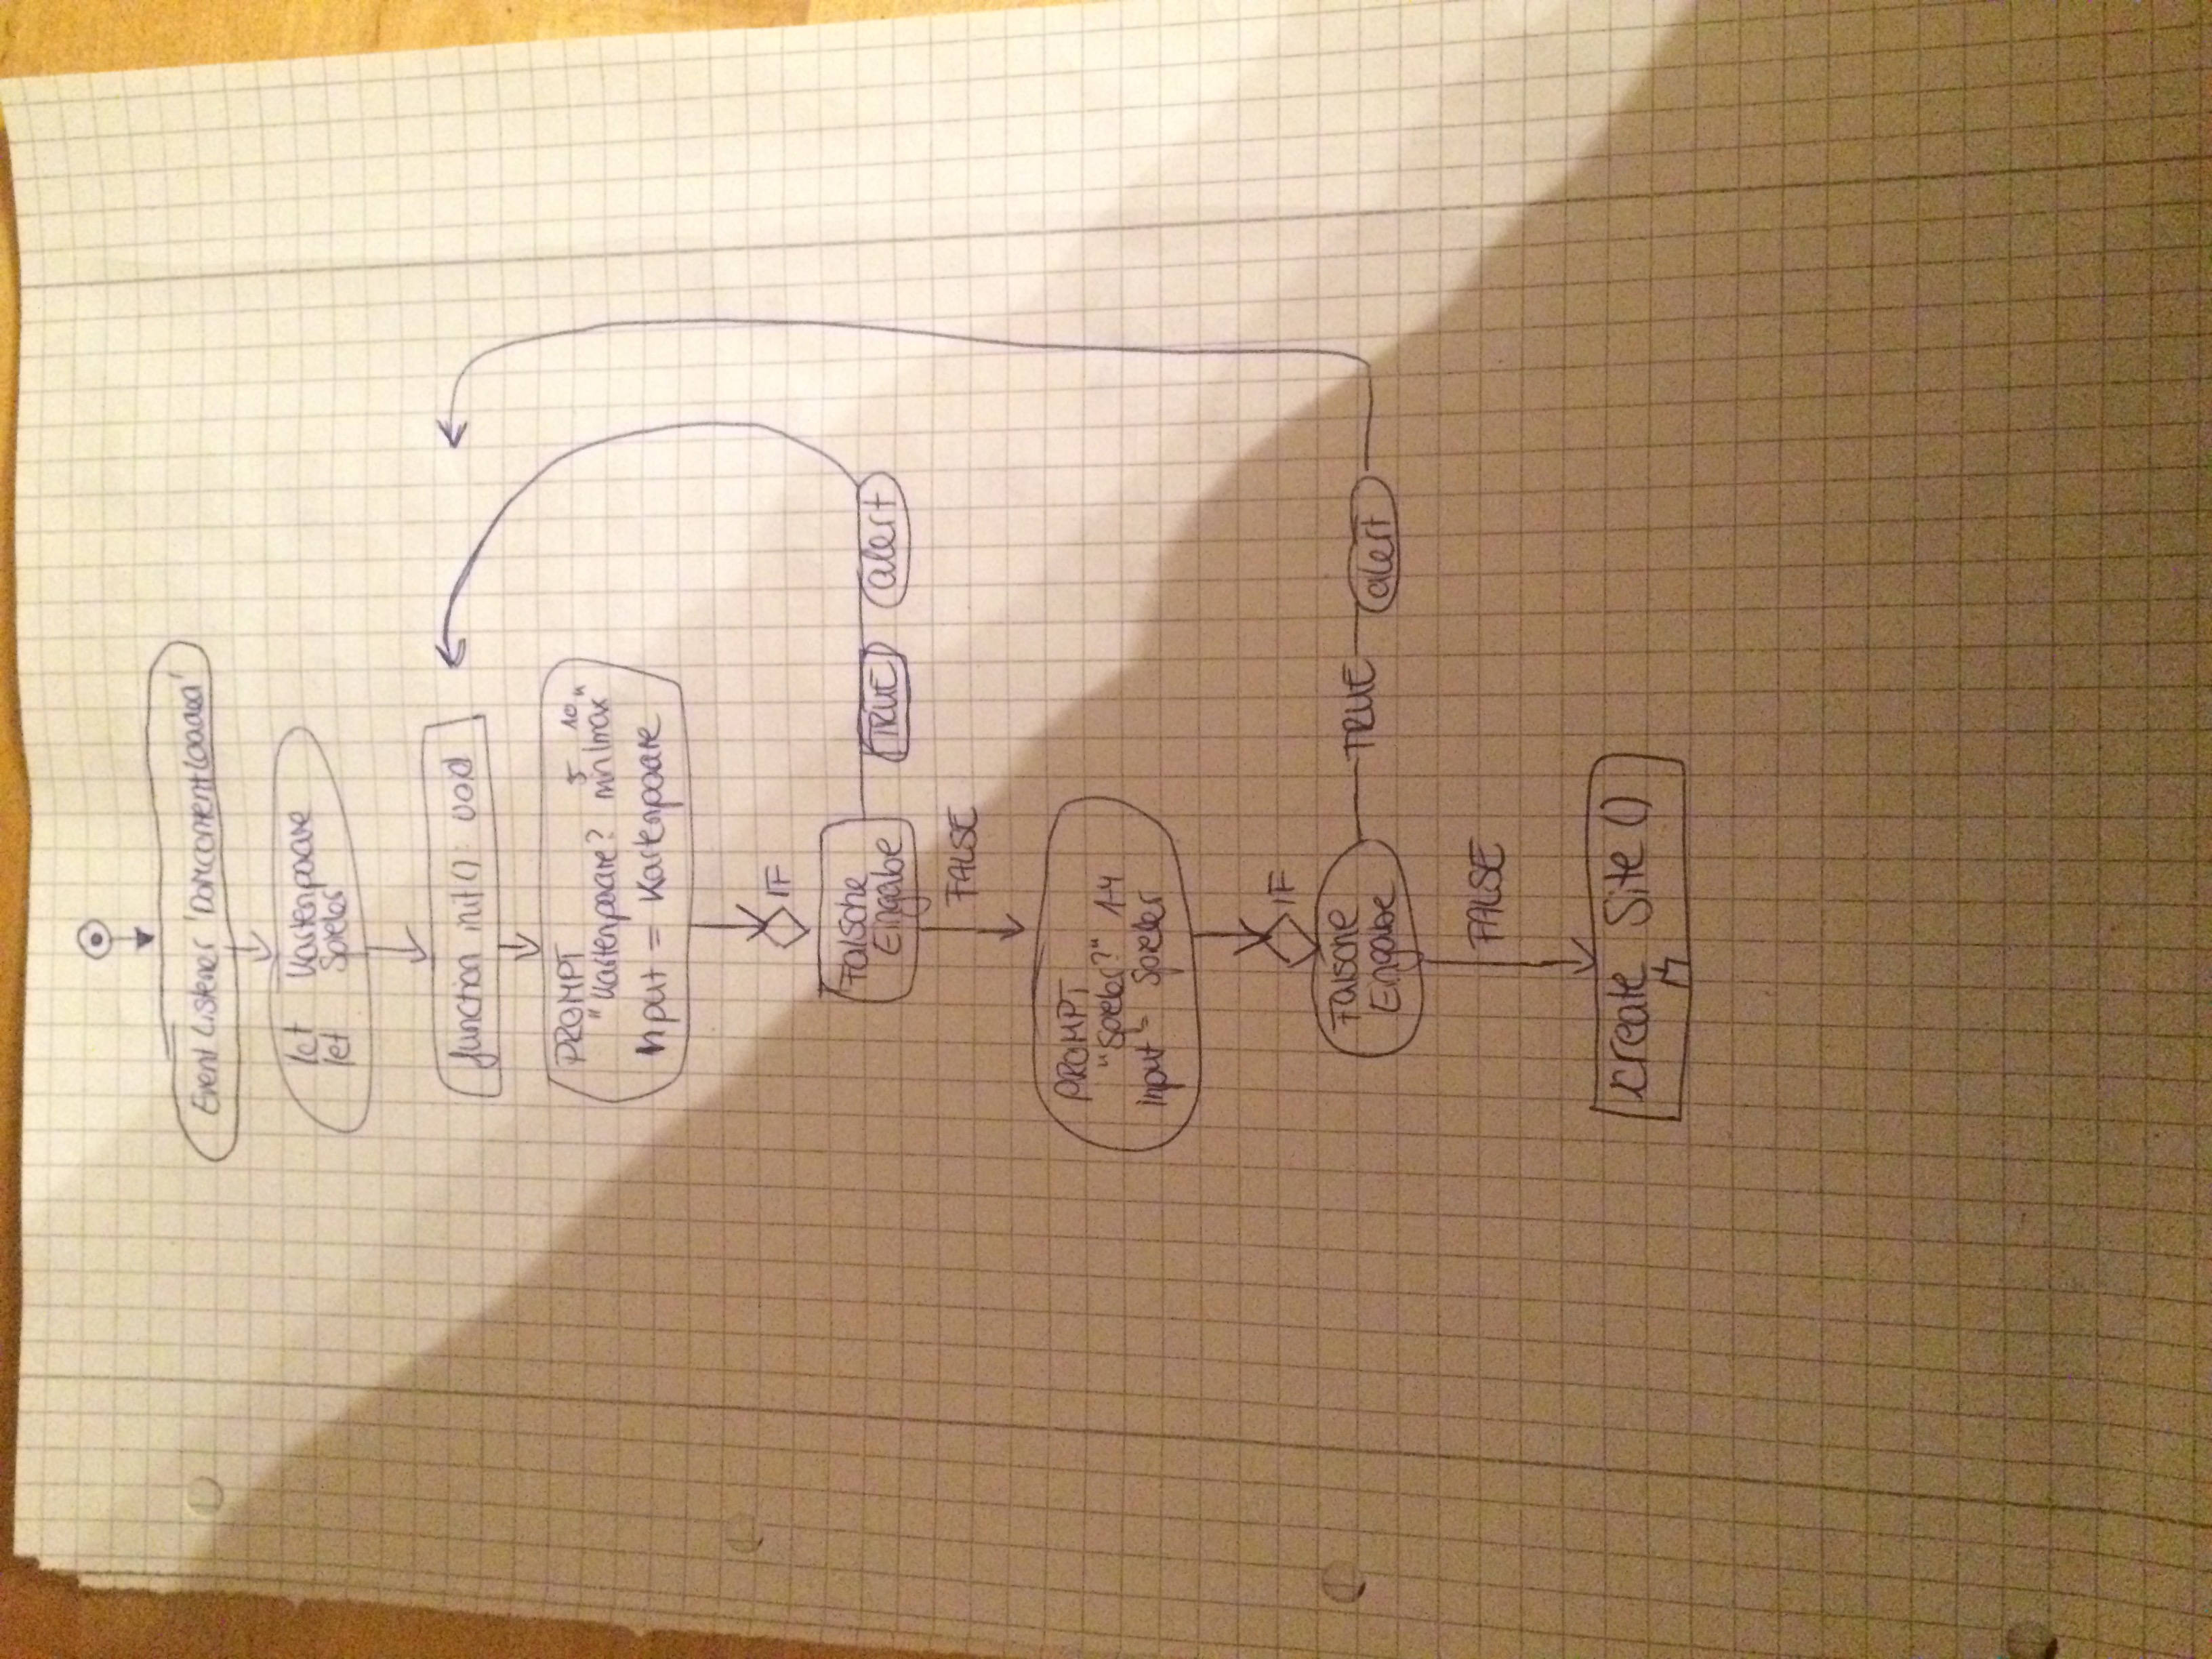 Event Listener 'DomcontentLoaded'
let Kartenpaare
let Spieler
function init() : void
PROMPT
5 10
"Kartenpaare? min/max"
Input = Kartenpaare
IF
Falsche
Eingabe
TRUE alert
FALSE
PROMPT
"Spieler?" 1-4
input = Spieler
IF
Falsche
Eingabe
TRUE alert
FALSE
create Site ()